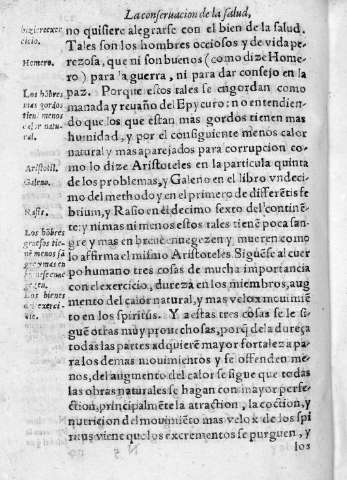 La conseruacion de la salud,
no quisiere alegrarse con el bien de la salud.
Tales son los hombres occiosos y de vida pe-
rezosa, que ni son buenos (como dize Home-
ro) para la guerra, ni para dar consejo en la
paz. Porque estos tales se ẽgordan como
manada y reuaño del Epycuro: no entendien-
do que los que estan mas gordos tienen mas
humidad, y por el consiguiente menos calor
natural y mas aparejados para corrupcion co-
mo lo dize Aristoteles en la particula quinta
de los problemas, y Galeno en el libro vndeci-
mo del methodo y en el primero de differẽtis fe
brium, y Rasio en el decimo sexto del continẽ-
te; y ni mas ni menos estos tales tienẽ poca san-
gre y mas en breue enuegezen y mueren como
lo affirma el mismo Aristoteles. Siguẽse al cuer
po humano tres cosas de mucha importancia
con el exercicio, dureza en los miembros, aug
mento del calor natural, y mas velox mouimiẽ
to en los spiritus. Y a estas tres cosas se le si-
guẽ otras muy prouechosas, porq̃ de la dureza
todas las partes adquierẽ mayor fortaleza pa-
ra los demas mouimientos y se offenden me-
nos, del augmento del calor se sigue que todas
las obras naturales se hagan con mayor perfe-
ction, principalmẽte la atraction, la coction, y
nutricion del mouimiẽto mas velox de los spi
ritus viene que los excrementos se purguen, y
los
cicio.
Homero.
Los hõbres
mas gordos
tienẽ menos
calor natu-
ral.
Aristotil.
Galeno.
Rasis.
Los hõbres
gruesos tie-
nẽ menos sã
gre y mas en
Los bienes